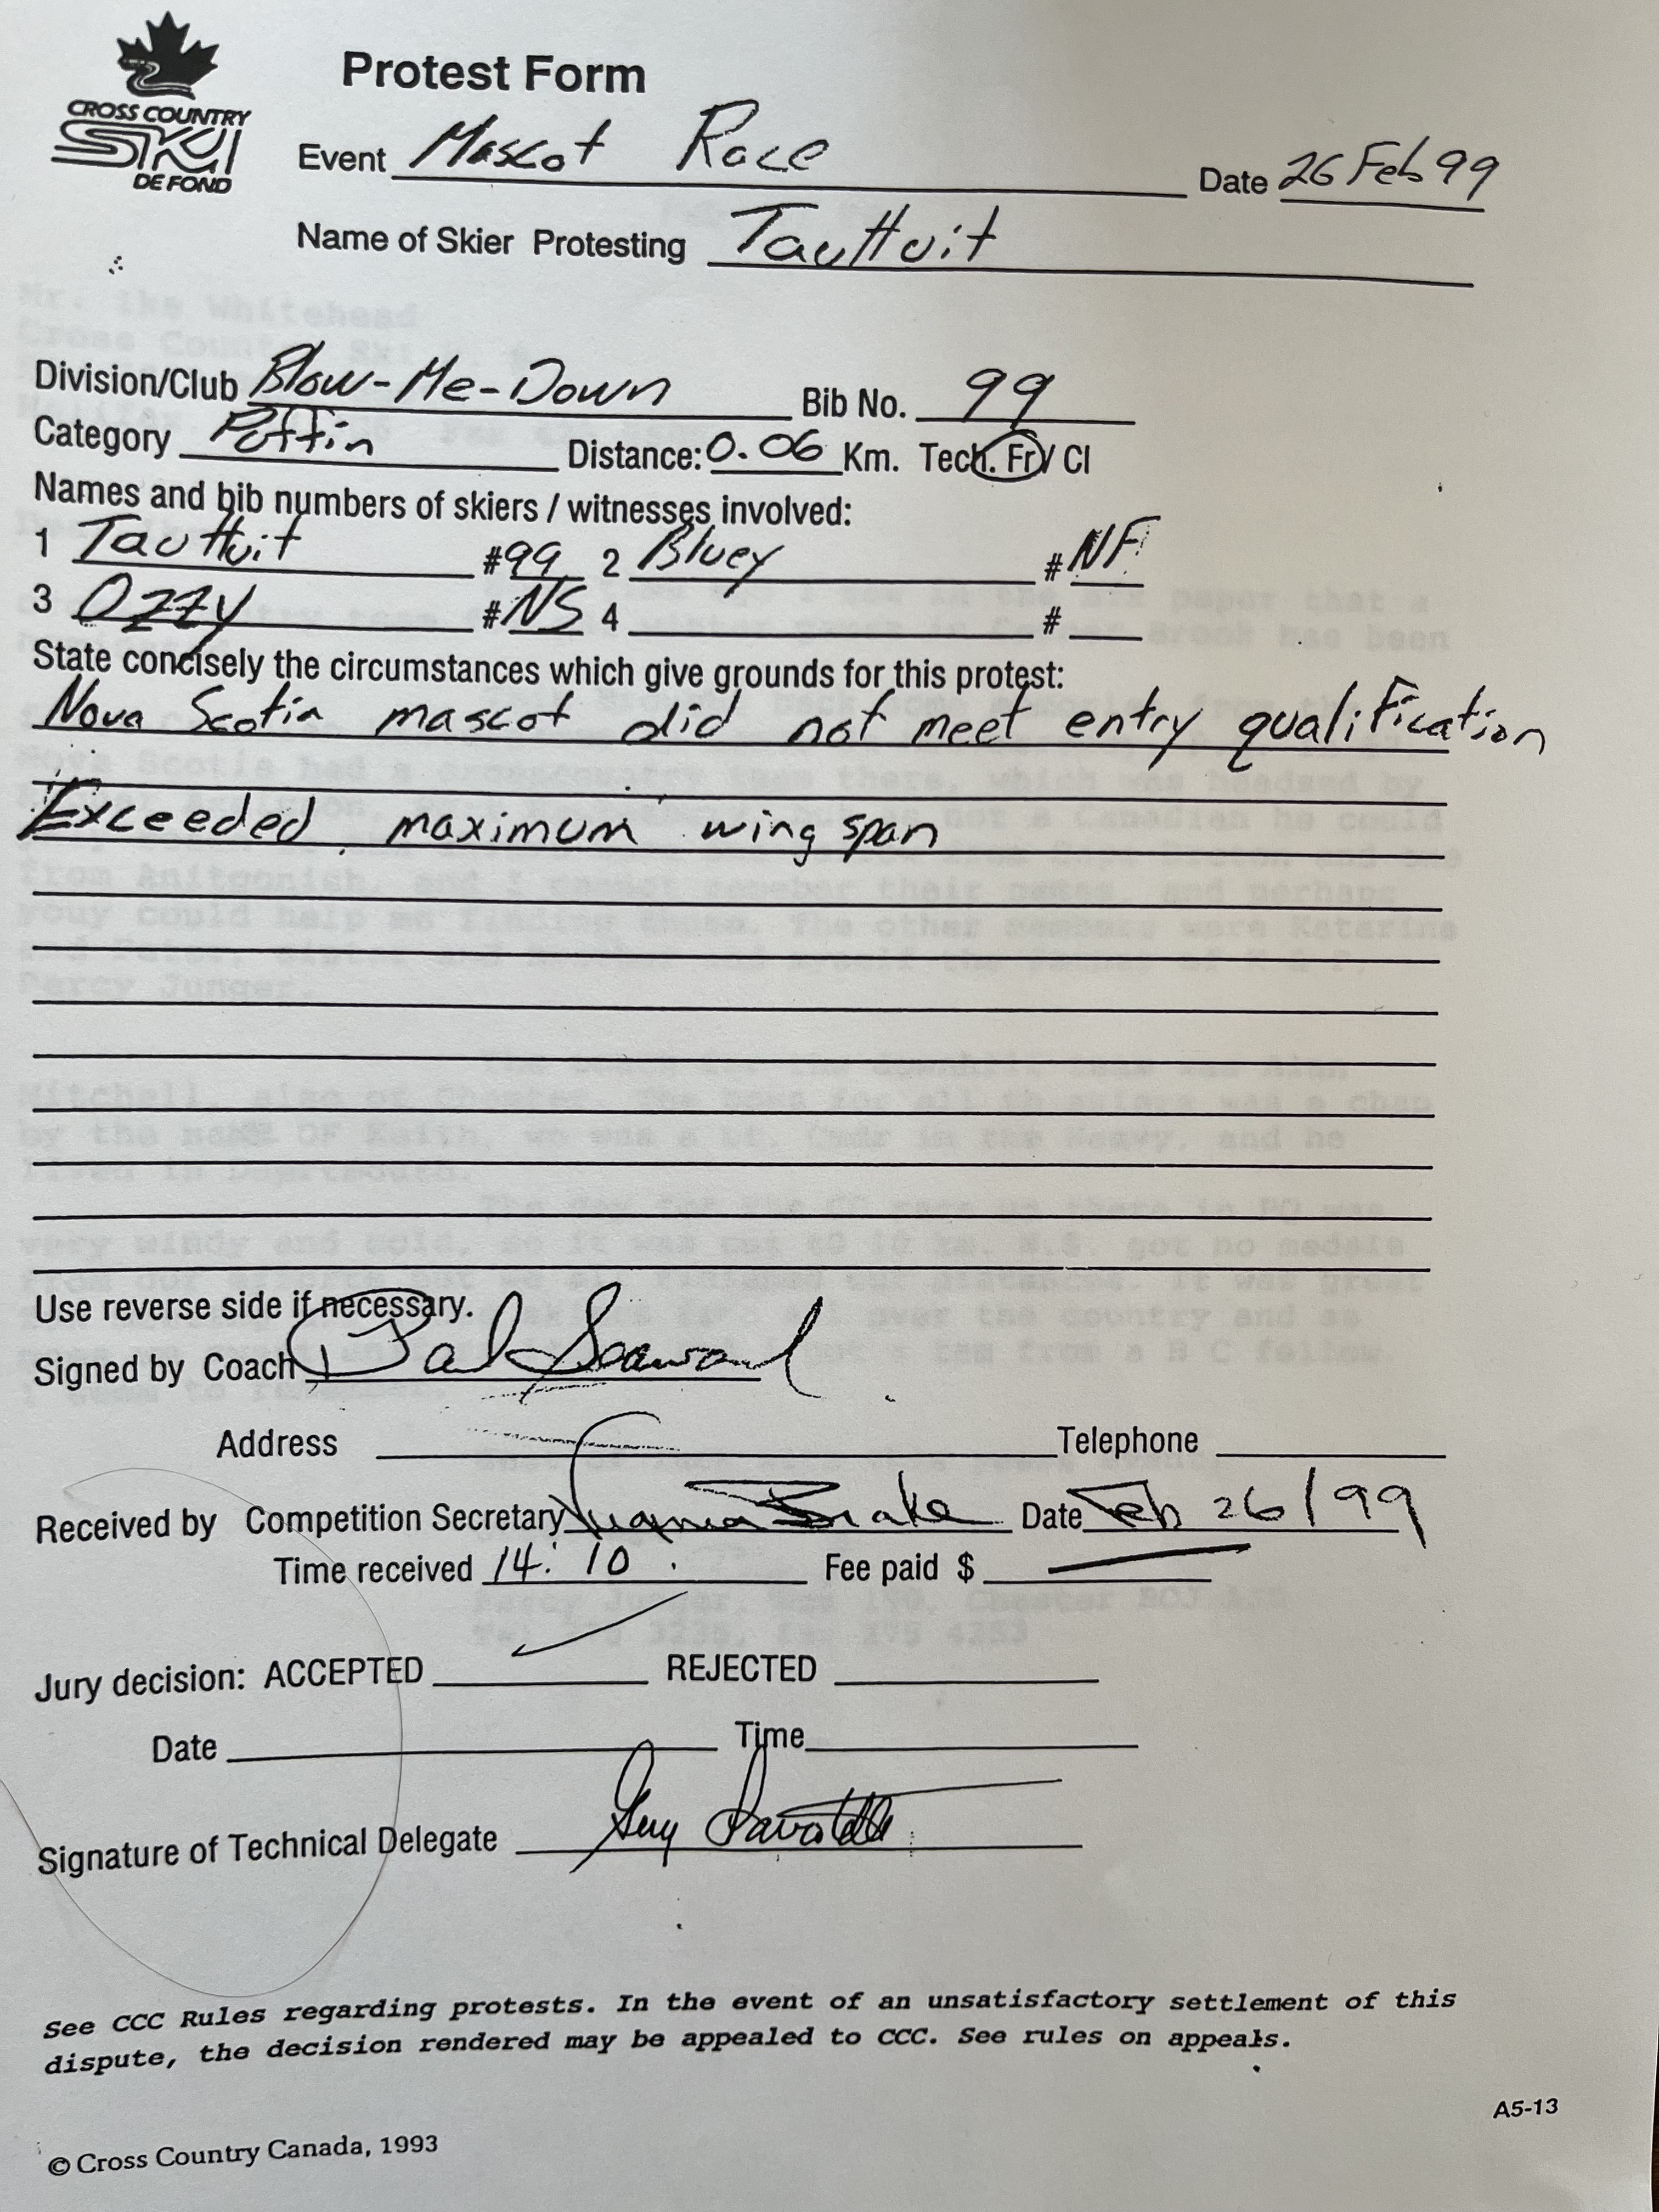 CROSS COUNTRY
SKI
DE FOND
Protest Form
Event Mascot Race Date 26 Feb 99
Name of Skier Protesting Tauttuit
Division/Club Blow-Me-Down Bib No. 99
Category Puffin Distance: 0.06 Km. Tech. Fr / Cl
Names and bib numbers of skiers / witnesses involved:
1 Tauttuit #99 2 Bluey #NF
3 Ozzy #NS 4 #
State concisely the circumstances which give grounds for this protest:
Nova Scotia mascot did not meet entry qualification
Exceeded maximum wing span
Use reverse side if necessary.
Signed by Coach
Address Telephone
Received by Competition Secretary Brake Date Feb 26/99
Time received 14:10 Fee paid $
Jury decision: ACCEPTED REJECTED
Date Time
Signature of Technical Delegate Guy
See CCC Rules regarding protests. In the event of an unsatisfactory settlement of this
dispute, the decision rendered may be appealed to CCC. See rules on appeals.
A5-13
© Cross Country Canada, 1993